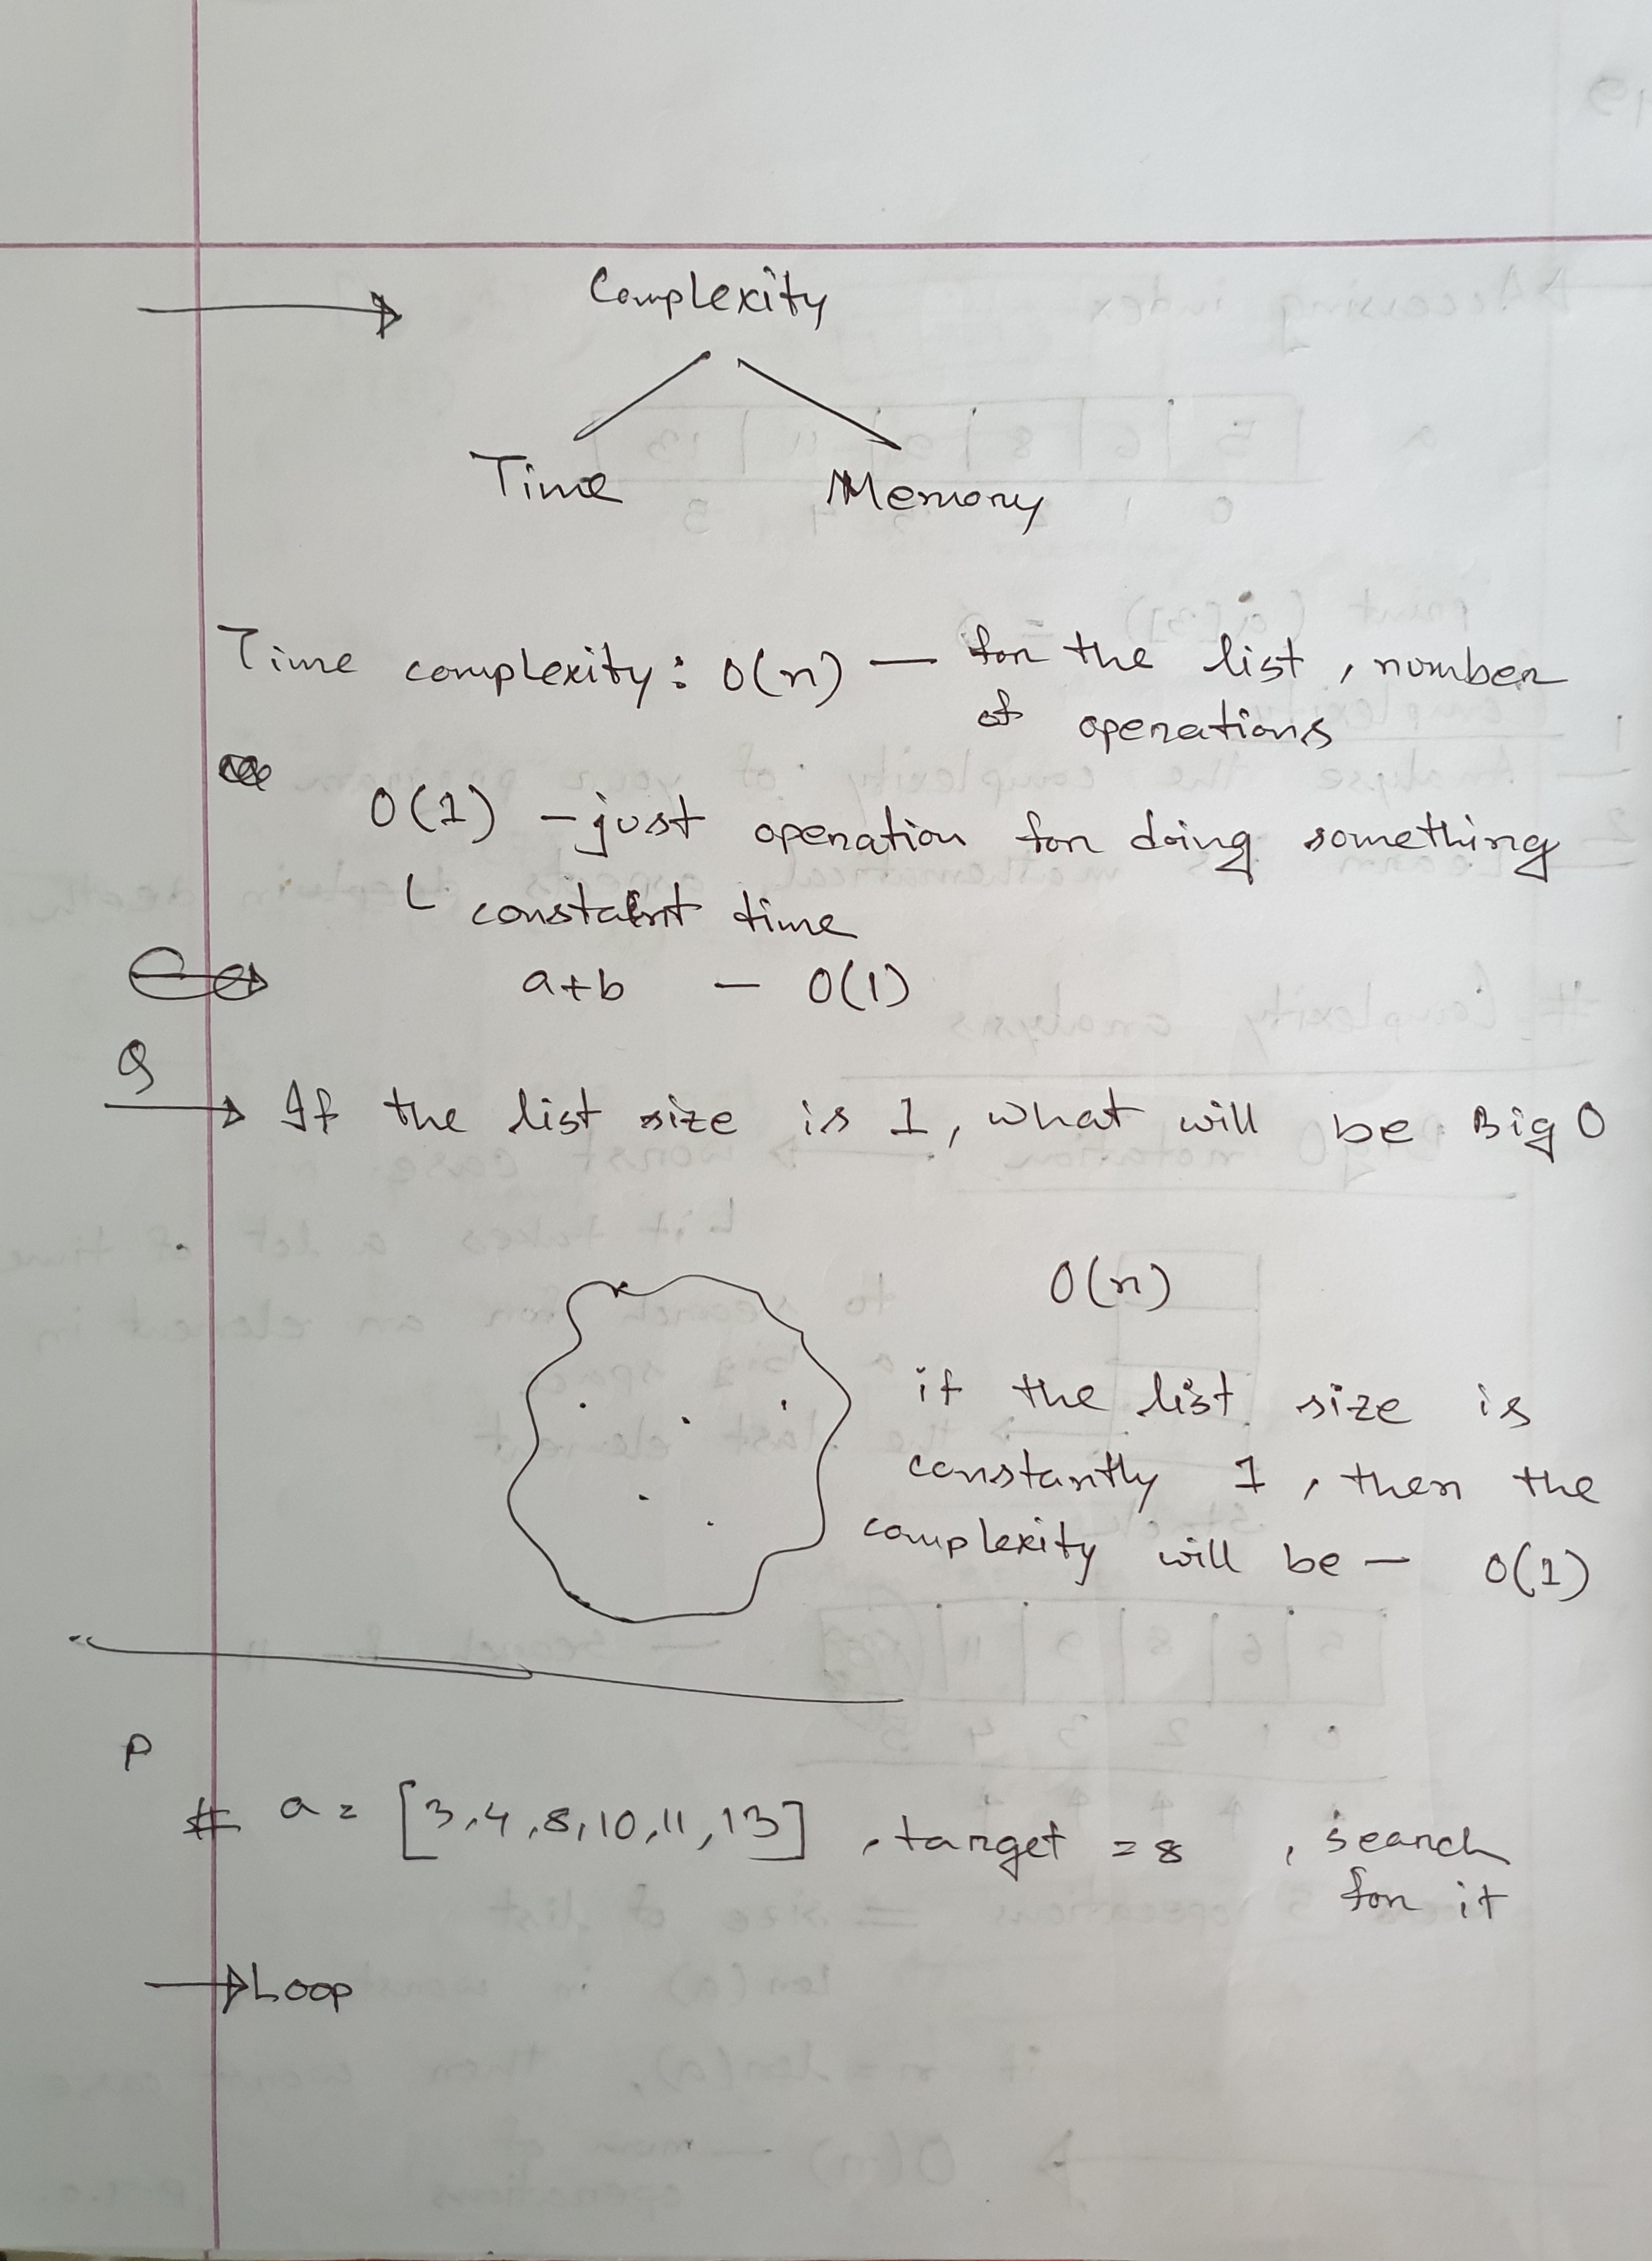 Complexity
Time Memory
Time complexity: O(n) — for the list, number
of operations
O(1) - just operation for doing something
constant time
a+b - O(1)
Q
If the list size is 1, what will be Big O
O(n)
if the list size is
constantly 1, then the
complexity will be - O(1)
P
# a = [3,4,8,10,11,13], target = 8, search
for it
Loop